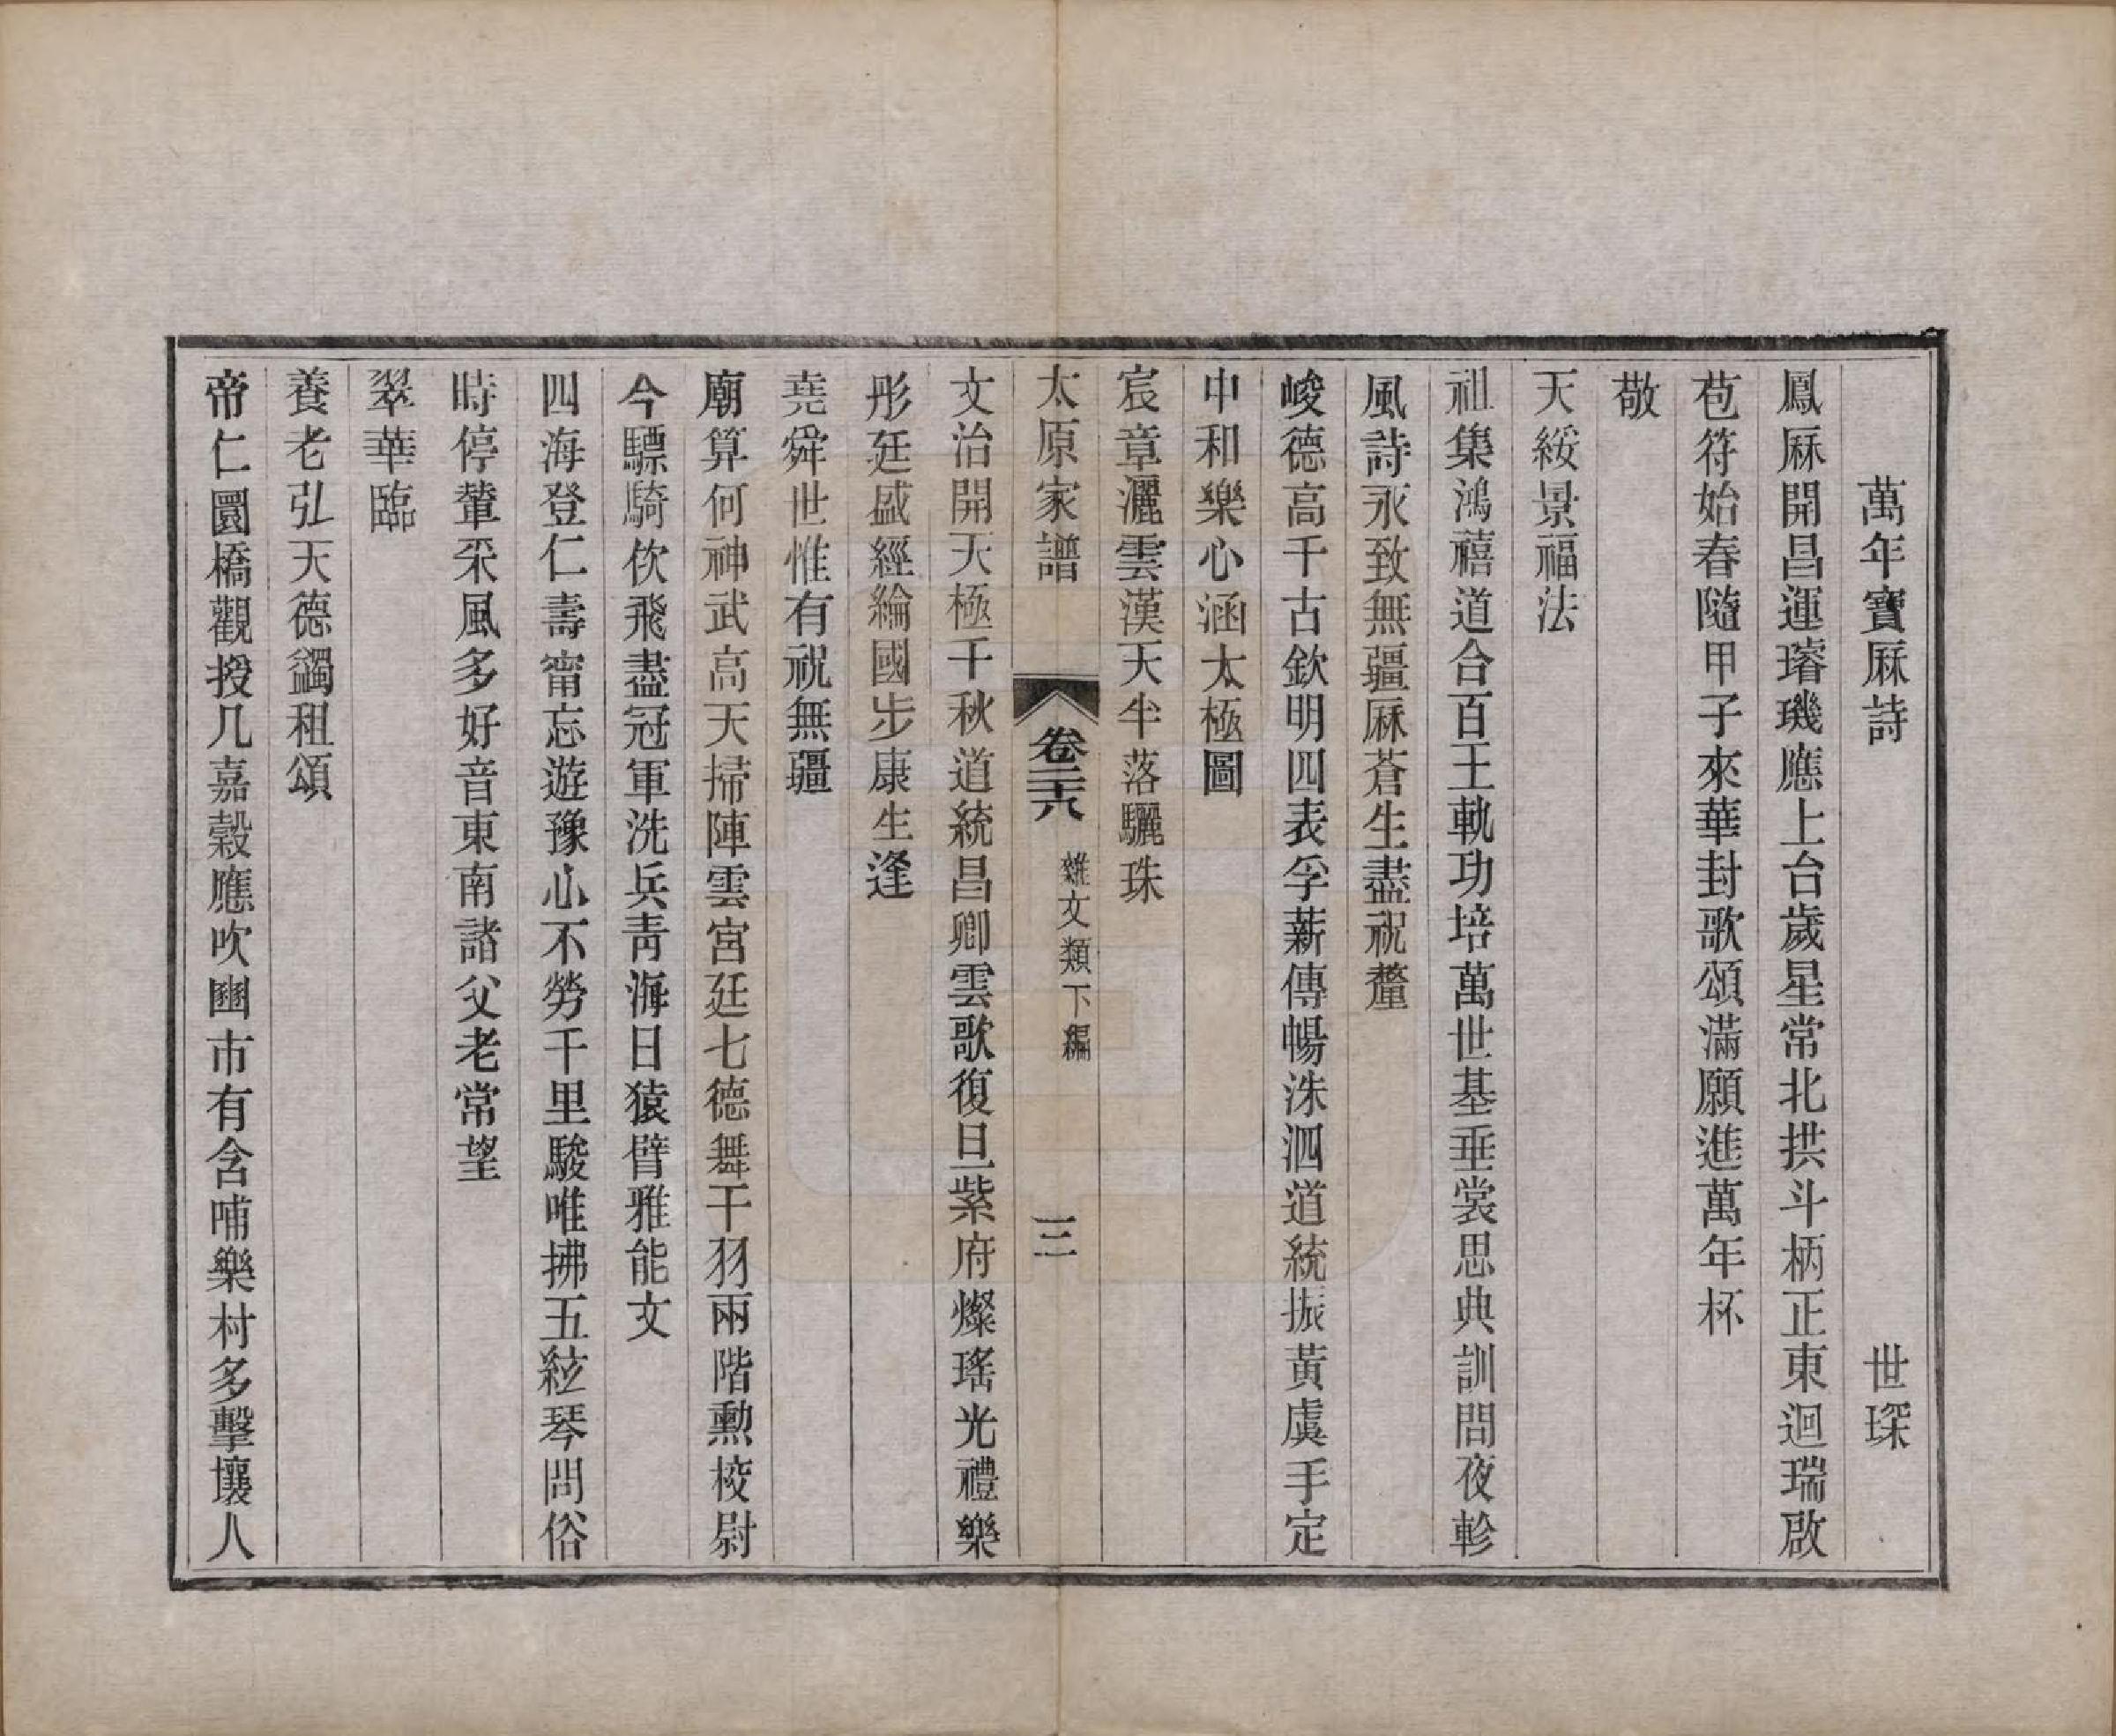 萬年寶厤詩　世琛
鳳厤開昌運璿璣應上台歲星常北拱斗柄正東迴瑞啟
苞符始春隨甲子來華封歌頌滿願進萬年杯
敬
天綏景福法
祖集鴻禧道合百王軌功培萬世基垂裳思典訓問夜軫
風詩永致無疆厤蒼生盡祝釐
峻德高千古欽明四表孚薪傳暢洙泗道統振黃虞手定
中和樂心涵太極圖
宸章灑雲漢天半落驪珠
太原家譜　卷二十八　雜文類下編　三
文治開天極千秋道統昌卿雲歌復旦紫府燦瑤光禮樂
彤廷盛經綸國步康生逢
堯舜世惟有祝無疆
廟算何神武高天掃陣雲宮廷七德舞干羽兩階勲校尉
今驃騎佽飛盡冠軍洗兵青海日猿臂雅能文
四海登仁壽甯忘遊豫心不勞千里駿唯拂五絃琴問俗
時停輦采風多好音東南諸父老常望
翠華臨
養老弘天德蠲租頌
帝仁圜橋觀授几嘉穀應吹豳市有含哺樂村多擊壤人